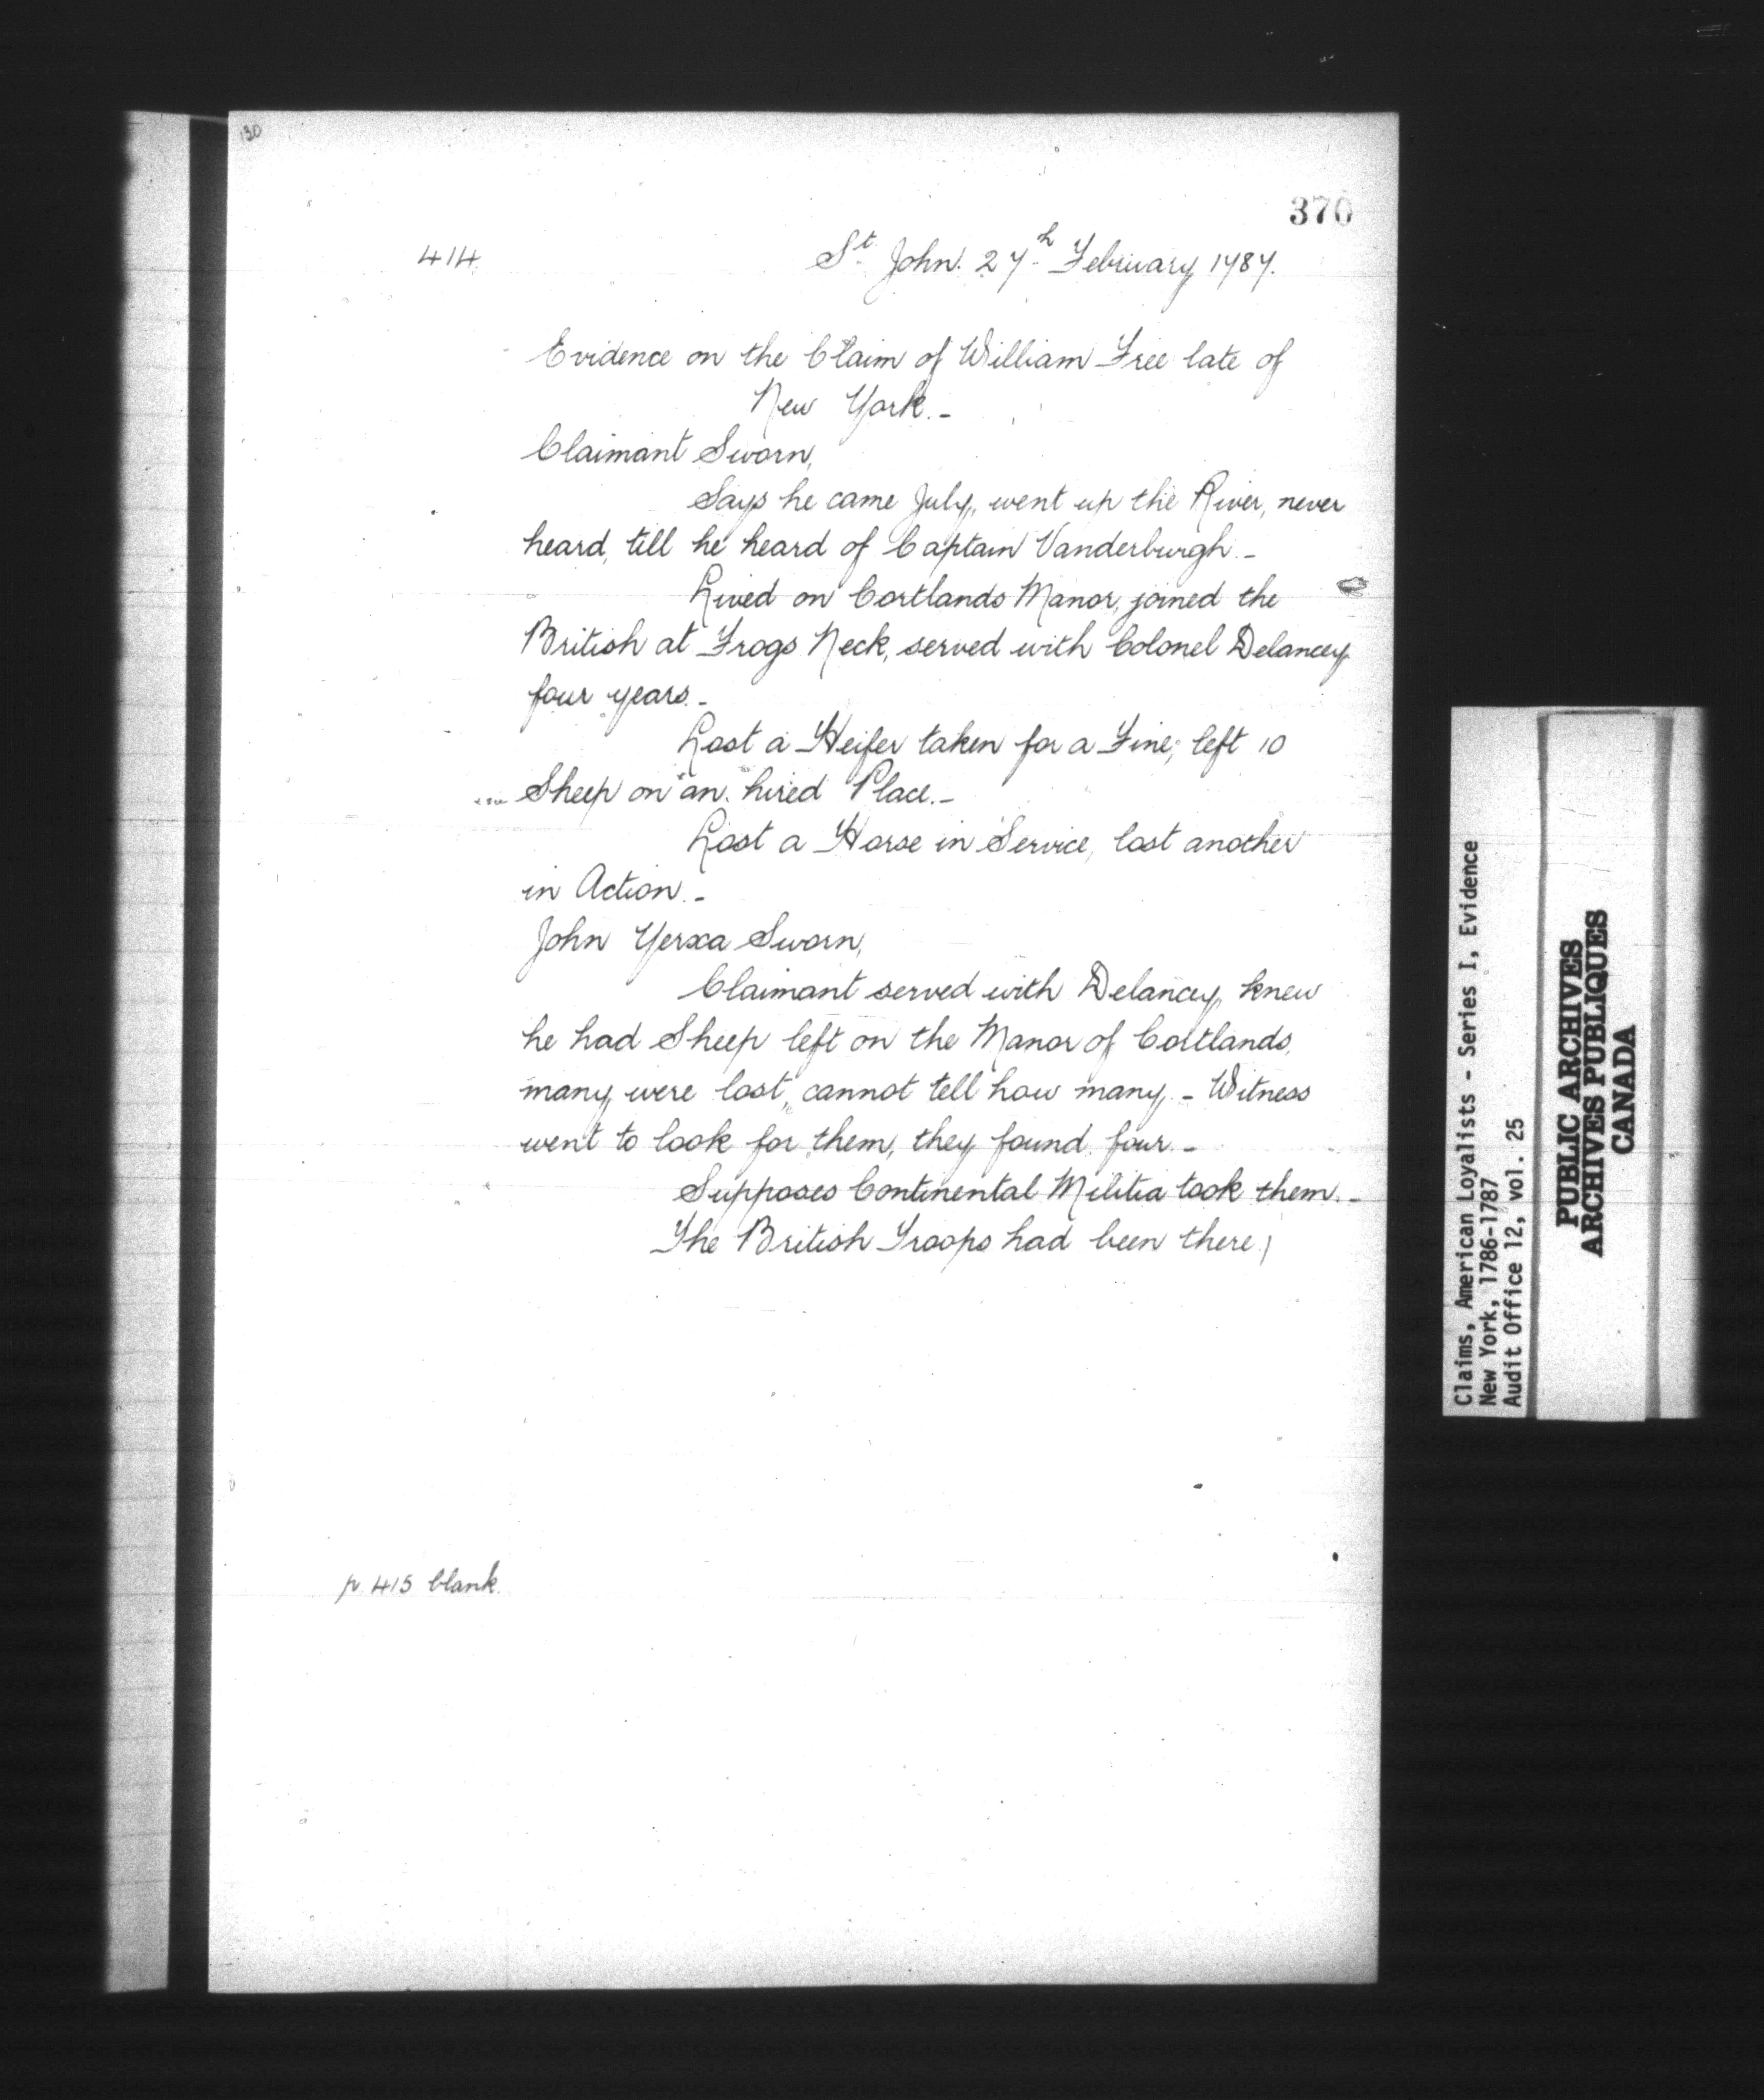 130
370
414
St John. 27th February 1787.
Evidence on the Claim of William Free late of
New York.-
Claimant Sworn,
Says he came July, went up the River, never
heard, till he heard of Captain Vanderburgh.-
Lived on Cortlands Manor, joined the
British at Frogs Neck, served with Colonel Delancey
four years.-
Lost a Heifer taken for a Fine; left 10
Sheep on an hired Place.-
Lost a Horse in Service, lost another
in Action.-
John Yerxa Sworn,
Claimant served with Delancey, knew
he had Sheep left on the Manor of Cortlands,
many were lost, cannot tell how many.- Witness
went to look for them, they found four.-
Supposes Continental Militia took them.-
The British Troops had been there.)
p. 415 blank.
Claims, American Loyalists - Series I, Evidence
New York, 1786-1787
Audit Office 12, vol. 25
PUBLIC ARCHIVES
ARCHIVES PUBLIQUES
CANADA